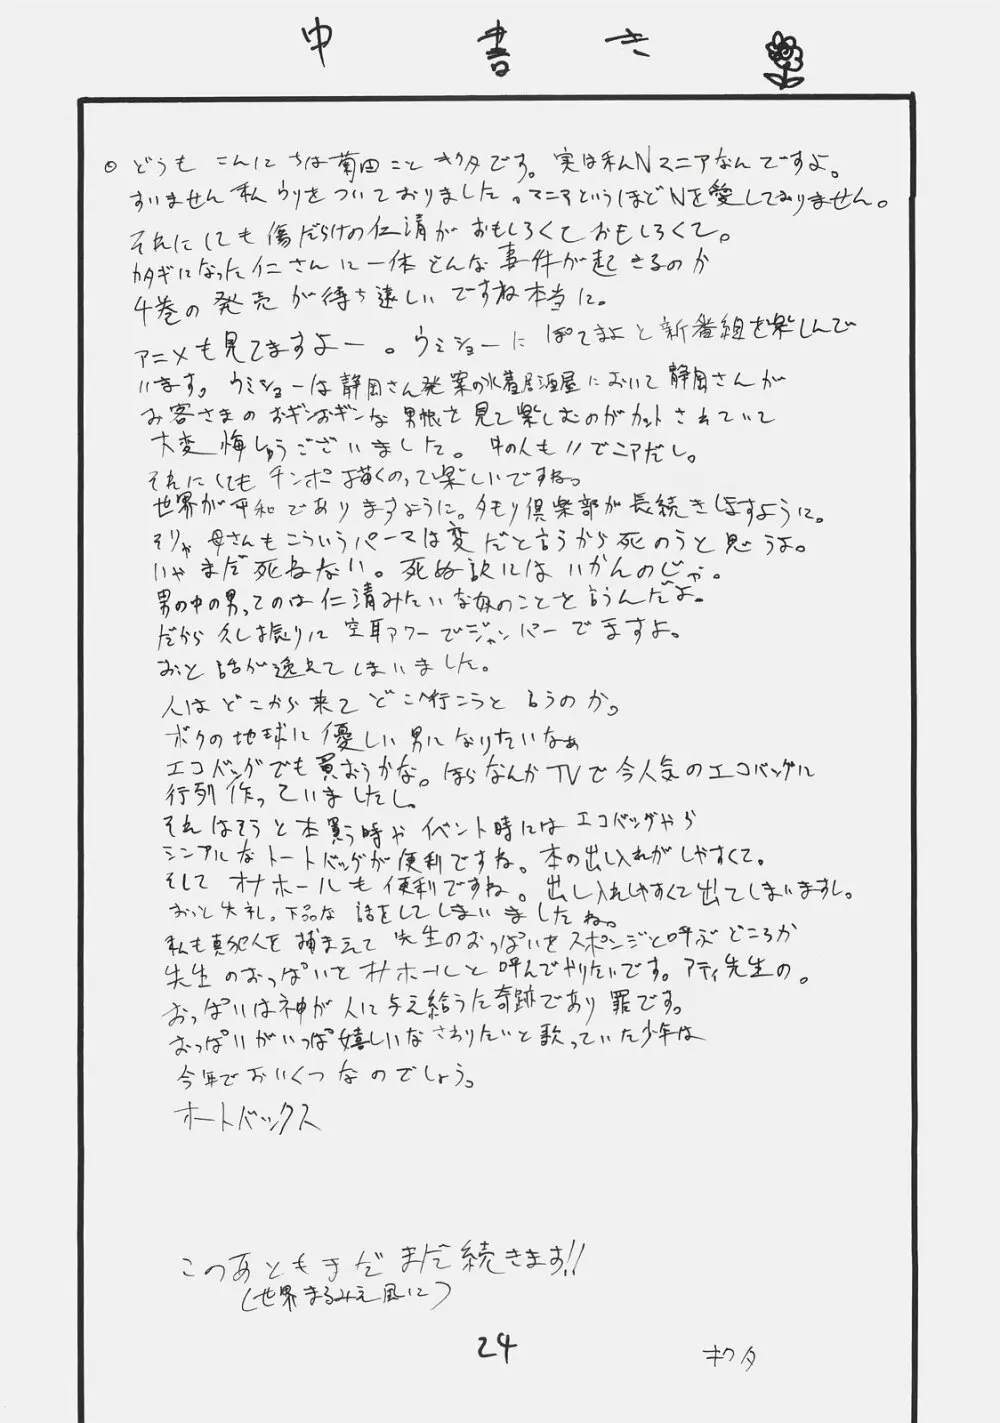 中書き
どうも こんにちは菊田こと キクタです。実は私Nマニアなんですよ。
すいません 私 ウソをついておりました。マニアというほどNを愛しておりません。
それにしても 傷だらけの仁清が おもしろくて おもしろくて。
カタギになった仁さんに一体どんな事件が起きるのか
4巻の発売が待ち遠しいですね本当に。
アニメも見てますよー。ウミショーに ぽてまよと新番組を楽しんで
います。ウミショーは静岡さん発案の水着居酒屋において静岡さんが
お客さまのおギンおギンな男根を見て楽しむのがカットされていて
大変悔しゅうございました。中の人も〃でニアだし。
それにしても チンポ描くのって楽しいですね。
世界が平和でありますように。タモリ倶楽部が長続きしますように。
そりゃ 母さんもこういうパーマは変だと言うから死のうと思うよ。
いや まだ死ねない。死ぬ訳にはいかんのじゃ。
男の中の男ってのは仁清みたいな奴のことを言うんだよ。
だから 久し振りに空耳アワーでジャンパーでますよ。
おっと 話が逸れてしまいました。
人はどこから来て どこへ行こうと言うのか。
ボクの地球に優しい男になりたいなぁ
エコバッグでも買おうかな。ほらなんかTVで今人気のエコバッグに
行列作っていましたし。
それはそうと本買う時やイベント時にはエコバッグやら
シンプルなトートバッグが便利ですね。本の出し入れがしやすくて。
そして オナホールも便利ですね。出し入れしやすくて出てしまいますし。
おっと失礼。下品な話をしてしまいましたね。
私も真犯人を捕まえて 先生のおっぱいをスポンジと呼ぶどころか
先生のおっぱいをオナホールと呼んでやりたいです。アティ先生の。
おっぱいは神が人に与え給うた奇跡であり罪です。
おっぱいがいっぱ嬉しいなさわりたいと歌っていた少年は
今年でおいくつなのでしょう。
ホートバックス
このあともまだまだ続きます!!
(世界まるみえ風に)
24
キクタ